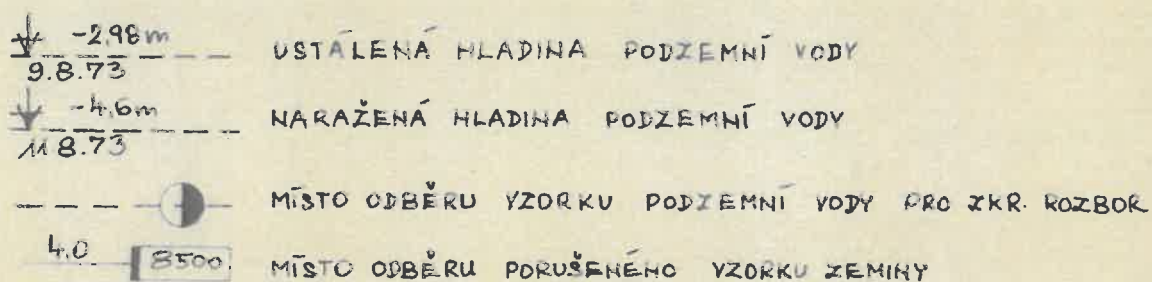 -2,98m USTÁLENÁ HLADINA PODZEMNÍ VODY
9.8.73
-4,6m NARAŽENÁ HLADINA PODZEMNÍ VODY
11 8.73
MÍSTO ODBĚRU VZORKU PODZEMNÍ VODY PRO ZKR. ROZBOR
4.0 8500 MÍSTO ODBĚRU PORUŠENÉHO VZORKU ZEMINY